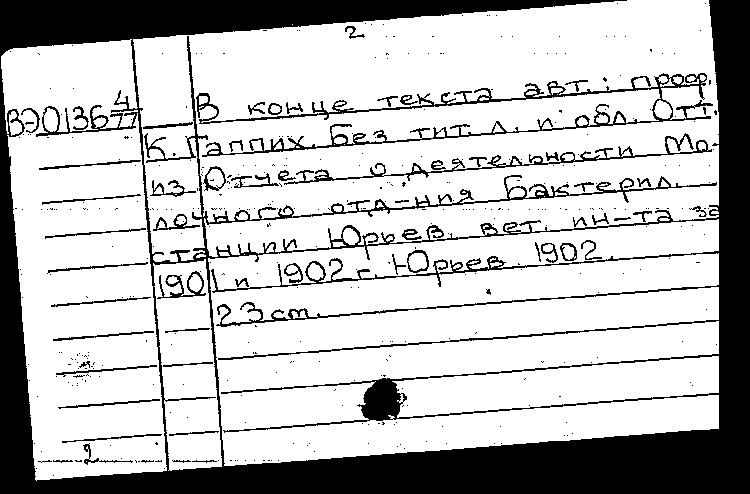 2
ВЭ0136 4/77
В конце текста авт.: проф.
К. Гаппих. Без тит. л. и обл. Отт.
из Отчета о деятельности Мо-
лочного отд-ния Бактерил.
станции Юрьев. вет. ин-та за
1901 и 1902 г. Юрьев. 1902.
23 ст.
2